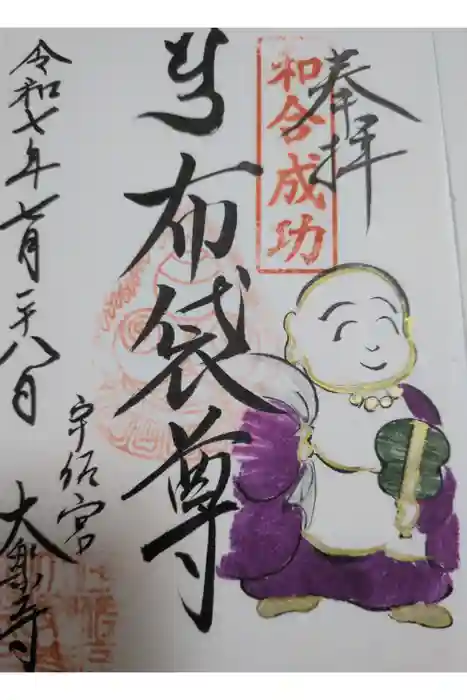 奉拝
和合成功
布袋尊
令和七年七月二十八日
宇佐宮
大楽寺